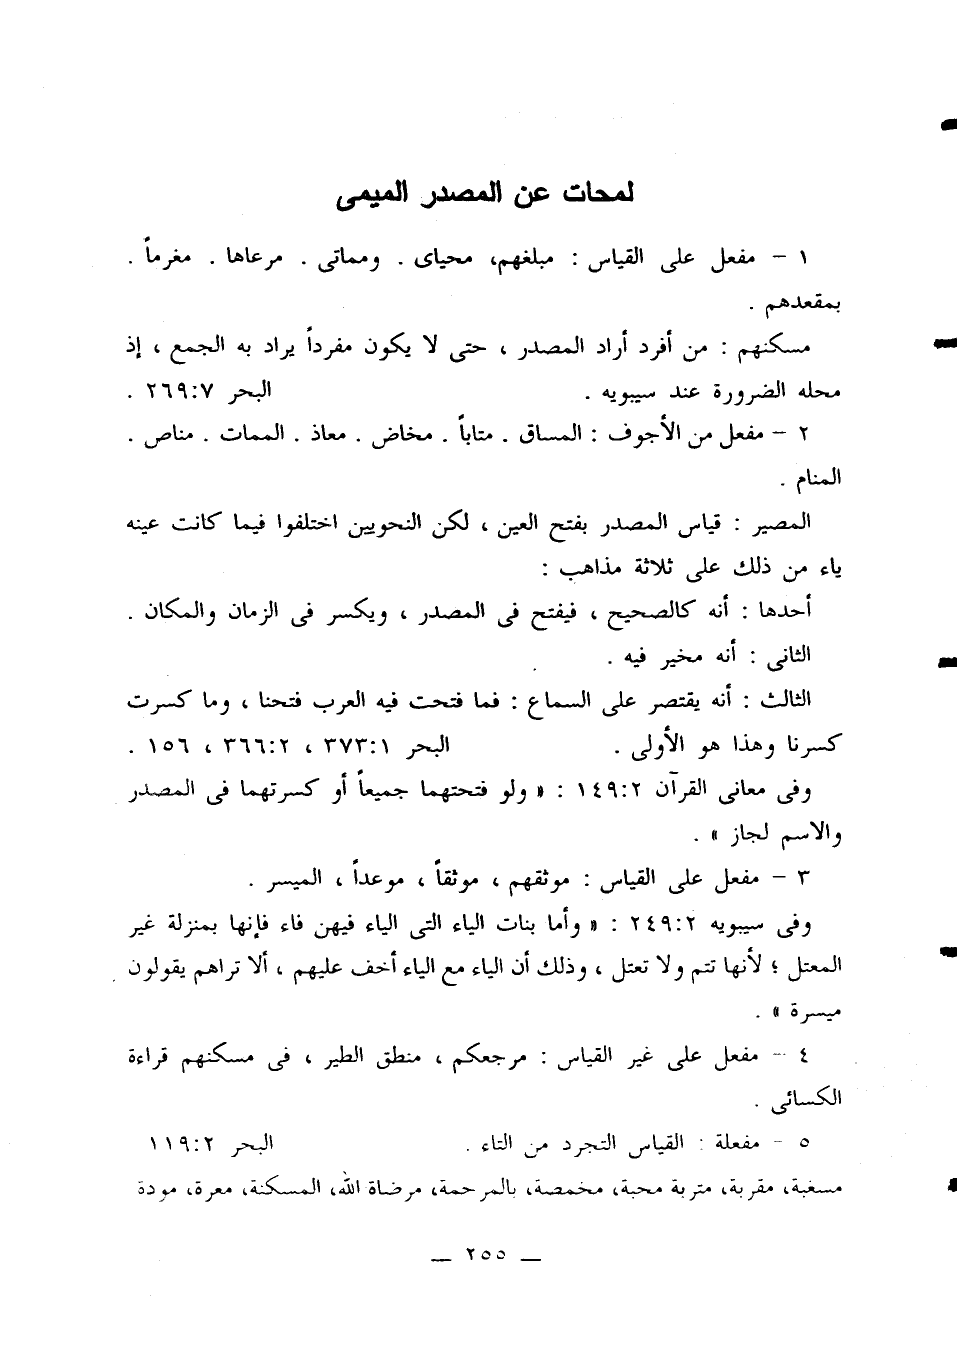 لمحات عن المصدر الميمى
١ – مفعل على القياس : مبلغهم، محياى . ومماتى . مرعاها . مغرماً .
بمقعدهم .
مسكنهم : من أفرد أراد المصدر ، حتى لا يكون مفرداً يراد به الجمع ، إذ
محله الضرورة عند سيبويه . البحر ٢٦٩:٧ .
٢ – مفعل من الأجوف : المساق . متاباً . مخاض . معاذ . الممات . مناص .
المنام .
المصير : قياس المصدر بفتح العين ، لكن النحويين اختلفوا فيما كانت عينه
ياء من ذلك على ثلاثة مذاهب :
أحدها : أنه كالصحيح ، فيفتح فى المصدر ، ويكسر فى الزمان والمكان .
الثانى : أنه مخير فيه .
الثالث : أنه يقتصر على السماع : فما فتحت فيه العرب فتحنا ، وما كسرت
كسرنا وهذا هو الأولى . البحر ٣٧٣:١ ، ٣٦٦:٢ ، ١٥٦ .
وفى معانى القرآن ١٤٩:٢ : « ولو فتحتهما جميعاً أو كسرتهما فى المصدر
والاسم لجاز » .
٣ – مفعل على القياس : موثقهم ، موثقاً ، موعداً ، الميسر .
وفى سيبويه ٢٤٩:٢ : « وأما بنات الياء التى الياء فيهن فاء فإنها بمنزلة غير
المعتل ؛ لأنها تتم ولا تعتل ، وذلك أن الياء مع الياء أخف عليهم ، ألا تراهم يقولون
ميسرة » .
٤ – مفعل على غير القياس : مرجعكم ، منطق الطير ، فى مسكنهم قراءة
الكسائى .
٥ – مفعلة : القياس التجرد من التاء . البحر ١١٩:٢
مسغبة، مقربة، متربة محبة، مخمصة، بالمرحمة، مرضاة الله، المسكنة، معرة، مودة
— ٢٥٥ —